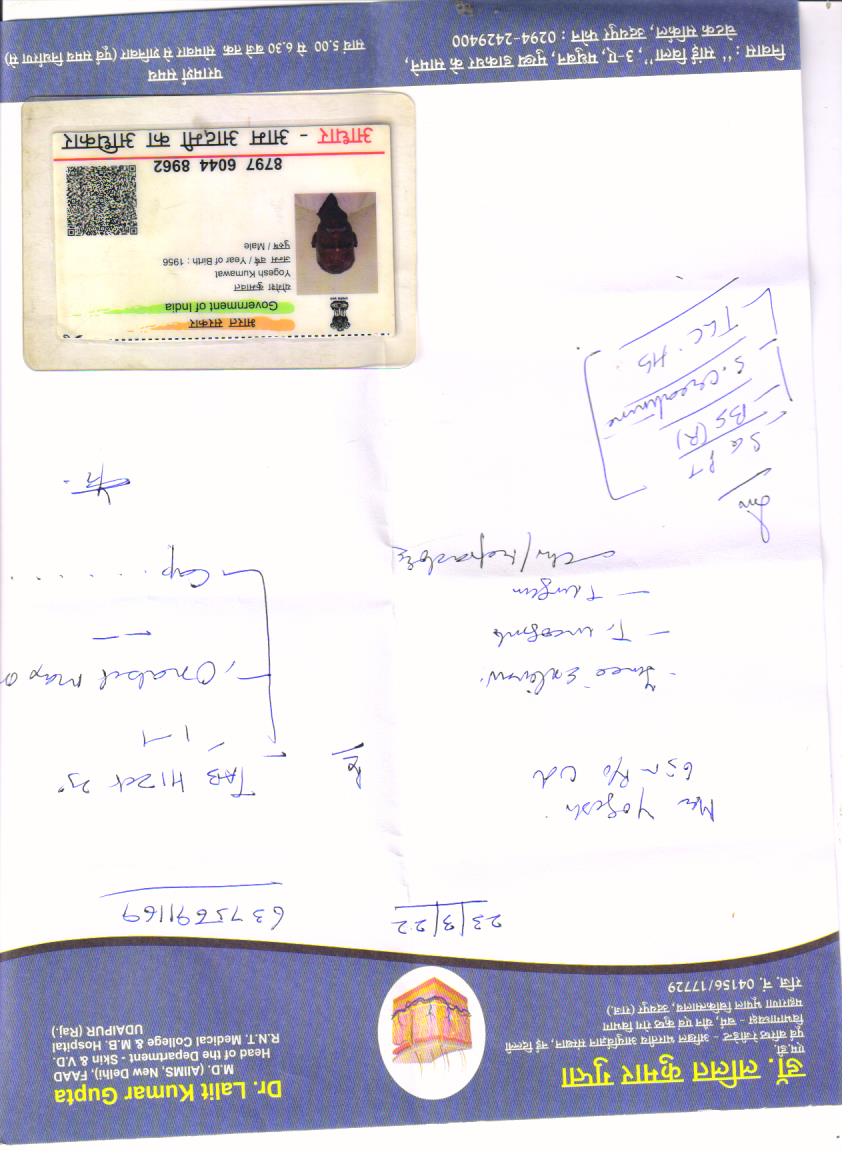 डॉ. ललित कुमार गुप्ता
एम.डी.
पूर्व वरिष्ठ रेजीडेन्ट - अखिल भारतीय आयुर्विज्ञान संस्थान, नई दिल्ली
विभागाध्यक्ष - चर्म, यौन एवं कुष्ठ रोग विभाग
महाराणा भूपाल चिकित्सालय, उदयपुर (राज.)
रजि. नं. 04156/17729
Dr. Lalit Kumar Gupta
M.D. (AIIMS, New Delhi), FAAD
Head of the Department - Skin & V.D.
R.N.T. Medical College & M.B. Hospital
UDAIPUR (Raj.)
23/3/22
6375691169
Mr Yogesh
65
Rx
TAB HIZet 25
1-1
Cap
Inv
SGPT
BS (R)
S. Creatinine
TLC. Hb
भारत सरकार
Government of India
योगेश कुमावत
Yogesh Kumawat
जन्म वर्ष / Year of Birth : 1956
पुरुष / Male
8797 6044 8962
आधार - आम आदमी का अधिकार
निवास : "साई विला", 3-ए, मधुबन, मुख्य डाकघर के सामने,
चेटक सर्कल, उदयपुर फोन : 0294-2429400
परामर्श समय
सायं 5.00 से 6.30 बजे तक सोमवार से शनिवार (पूर्व समय निर्धारण से)